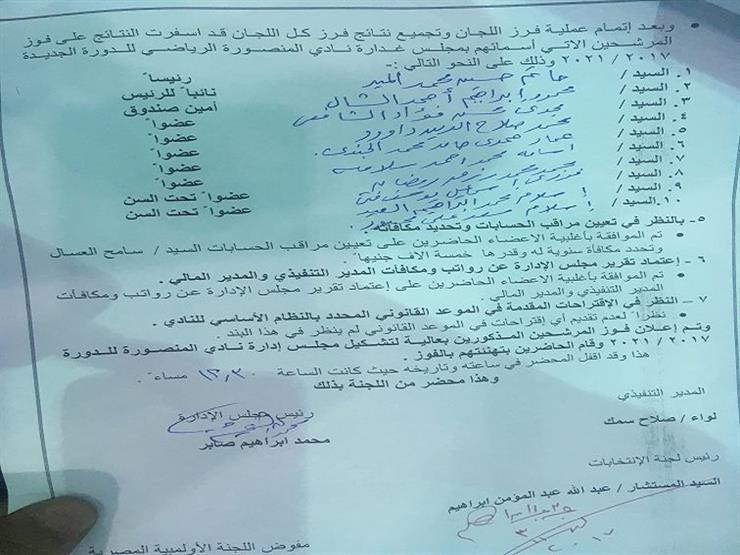 • وبعد إتمام عملية فرز اللجان وتجميع نتائج فرز كل اللجان قد اسفرت النتائج على فوز
المرشحين الاتي أسمائهم بمجلس غدارة نادي المنصورة الرياضي للدورة الجديدة
٢٠١٧ / ٢٠٢١ وذلك على النحو التالي :
١. السيد / حاتم حسين محمد المير رئيساً
٢. السيد / محمود ابراهيم أحمد الشال نائباً للرئيس
٣. السيد / مجدي فؤاد أمين صندوق
٤. السيد / محمد صلاح الدين داوود عضواً
٥. السيد / عمار حمدي حامد محمد الجندي عضواً
٦. السيد / اسامه محمد احمد سلامه عضواً
٧. السيد / محمد عضواً
٨. السيد / عضواً
٩. السيد / اسلام محمد ابراهيم السعيد عضواً تحت السن
١٠. السيد / اسلام عضواً تحت السن
٥- بالنظر في تعيين مراقب الحسابات وتحديد مكافأته .
• تم الموافقة بأغلبية الاعضاء الحاضرين على تعيين مراقب الحسابات السيد / سامح العسال
وتحدد مكافأة سنوية له وقدرها خمسة الاف جنيهاً .
٦ – إعتماد تقرير مجلس الإدارة عن رواتب ومكافآت المدير التنفيذي والمدير المالي .
• تم الموافقة بأغلبية الاعضاء الحاضرين على إعتماد تقرير مجلس الإدارة عن رواتب ومكافآت
المدير التنفيذي والمدير المالي .
٧ – النظر في الإقتراحات المقدمة في الموعد القانوني المحدد بالنظام الأساسي للنادي .
• نظراً لعدم تقديم أي إقتراحات في الموعد القانوني لم ينظر في هذا البند .
وتم إعلان فوز المرشحين المذكورين بعالية لتشكيل مجلس إدارة نادي المنصورة للدورة
٢٠١٧ / ٢٠٢١ وقام الحاضرين بتهنئتهم بالفوز .
هذا وقد اقفل المحضر في ساعته وتاريخه حيث كانت الساعة ١٢,٣٠ مساءً .
وهذا محضر من اللجنة بذلك
المدير التنفيذي
رئيس مجلس الإدارة
لواء / صلاح سمك
محمد ابراهيم صابر
رئيس لجنة الإنتخابات
السيد المستشار / عبد الله عبد المؤمن ابراهيم
٢٠١٧
مفوض اللجنة الأولمبية المصرية